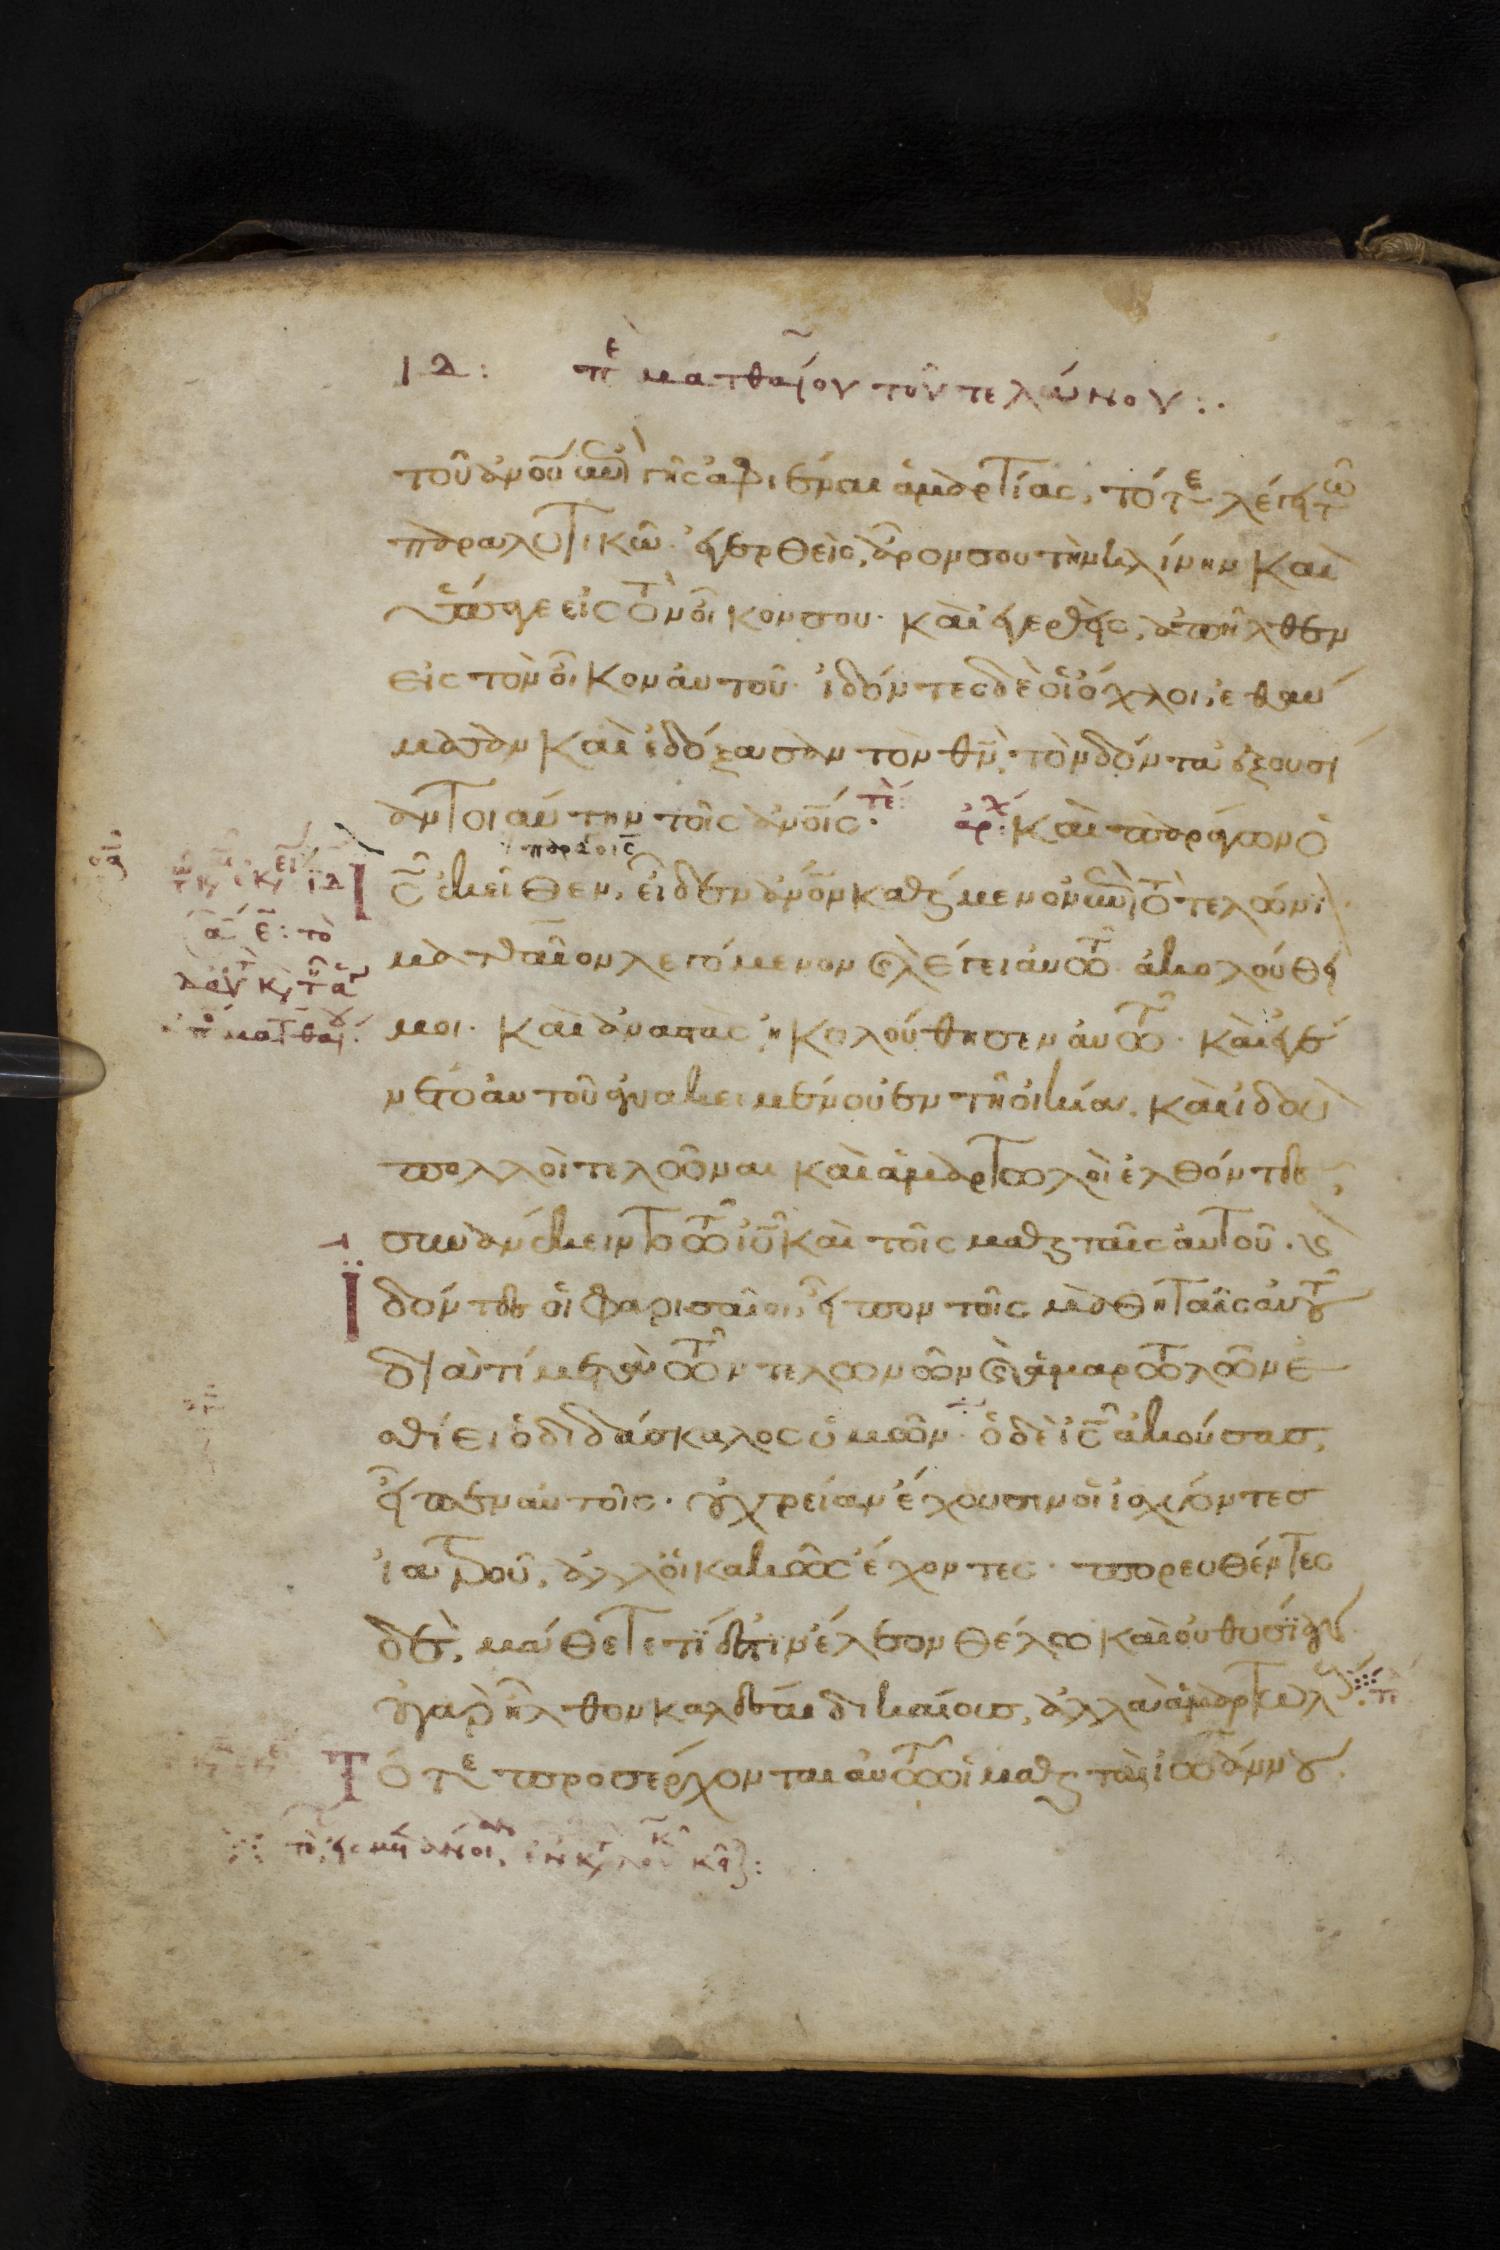 ιδ: πε ματθαίου τοῦ τελώνου:
τοῦ ἀνου ἐπὶ γῆς ἀφιέναι ἁμαρτίας, τότε λέγει τῶ
παραλυτικῶ. ἐγερθεὶς, ἆρόν σου τὴν κλίνην καὶ
ὕπαγε εἰς τὸν οἶκόν σου. καὶ ἐγερθεὶς, ἀπῆλθεν
εἰς τὸν οἶκον αὐτοῦ. ἰδόντες δὲ οἱ ὄχλοι, ἐθαύ
μασαν καὶ ἐδόξασαν τὸν θν, τὸν δόντα ἐξουσί
αν τοιαύτην τοῖς ἀνοις. τε αρχ: καὶ παράγων ὁ
ις ἐκεῖθεν, εἶδεν ἀνον καθήμενον ἐπὶ τὸ τελώνι
ματθαῖον λεγόμενον καὶ λέγει αὐτῶ ἀκολούθει
μοι. καὶ ἀναστὰς ἠκολούθησεν αὐτῶ. καὶ ἐγέ
νετο αὐτοῦ ἀνακειμένου ἐν τῆ οἰκία. καὶ ἰδοὺ
πολλοὶ τελῶναι καὶ ἁμαρτωλοὶ ἐλθόντες
συνανέκειντο τῶ ιυ καὶ τοῖς μαθηταῖς αὐτοῦ. καὶ
ἰδόντες οἱ φαρισαῖοι, εἶπον τοῖς μαθηταῖς αὐτοῦ
διὰ τί μετὰ τῶν τελωνῶν καὶ ἁμαρτωλῶν ἐ
σθίει ὁ διδάσκαλος ὑμῶν. ὁ δὲ ις ἀκούσας,
εἶπεν αὐτοῖς. οὐ χρείαν ἔχουσιν οἱ ἰσχύοντες
ἰατροῦ, ἀλλ' οἱ κακῶς ἔχοντες. πορευθέντες
δὲ, μάθετε τί ἐστιν ἔλεον θέλω καὶ οὐ θυσίαν
οὐ γὰρ ἦλθον καλέσαι δικαίους, ἀλλὰ ἁμαρτωλούς
Τότε προσέρχονται αὐτῶ οἱ μαθηταὶ ἰωάννου